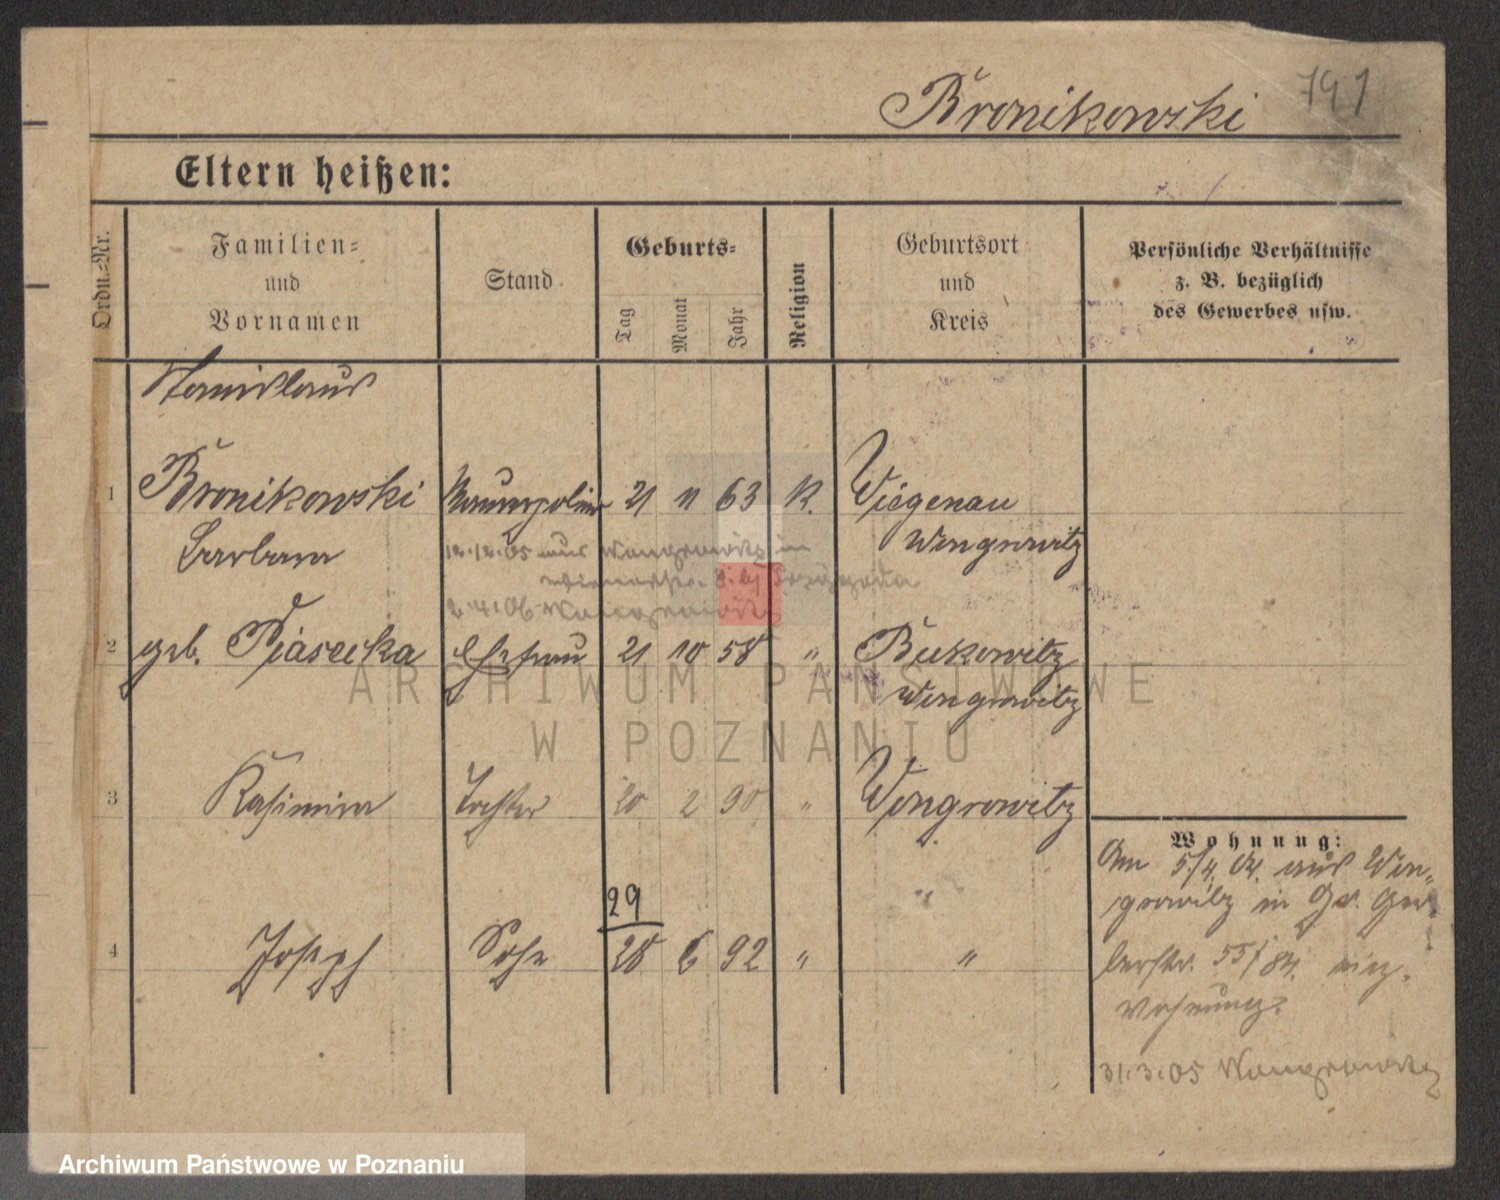 Bronikowski 791
Eltern heißen:
Ordn.-Nr.
Familien-
und
Vornamen
Stand
Geburts-
Tag
Monat
Jahr
Religion
Geburtsort
und
Kreis
Persönliche Verhältnisse
z. B. bezüglich
des Gewerbes usw.
Stanislaus
1 Bronikowski 21 11 63 K. Wiegenau
Barbara Wongrowitz
12.12.05 aus Wongrowitz in
2.4.06 Wongrowitz
2 geb. Piasecka Ehefrau 21 10 58 " Bukowitz
Wongrowitz
3 Kasimira Tochter 20 2 90 " Wongrowitz
Wohnung:
Am 5/4. 04. aus Won-
growitz in Gr. Ger-
berstr. 55/ 84. eig.
Wohnung.
31.3.05 Wongrowitz
"
29
4 Joseph Sohn 28 6 92 " "
ARCHIWUM PAŃSTWOWE
W POZNANIU
Archiwum Państwowe w Poznaniu